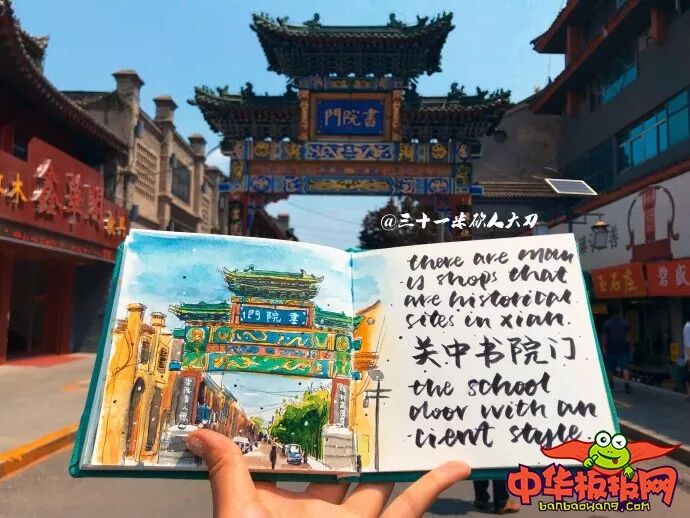 書院門
@三十一米砍人大刀
书院门
there are man
y shops that
are historical
sites in xian.
关中书院门
the school
door with an
cient style.
中华板报网
banbaowang.com